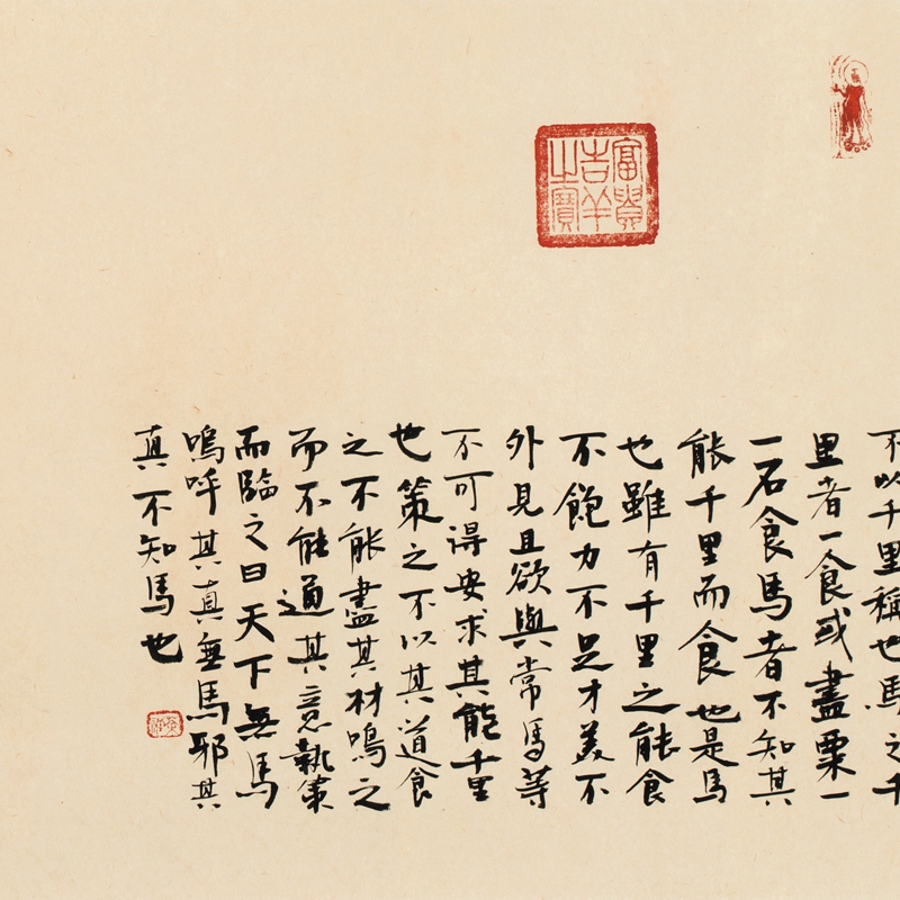 富貴
吉羊
之寶
不以千里稱也馬之千
里者一食或盡粟一
一石食馬者不知其
能千里而食也是馬
也雖有千里之能食
不飽力不足才美不
外見且欲與常馬等
不可得安求其能千里
也策之不以其道食
之不能盡其材鳴之
而不能通其意執策
而臨之曰天下無馬
嗚呼其真無馬邪其
真不知馬也